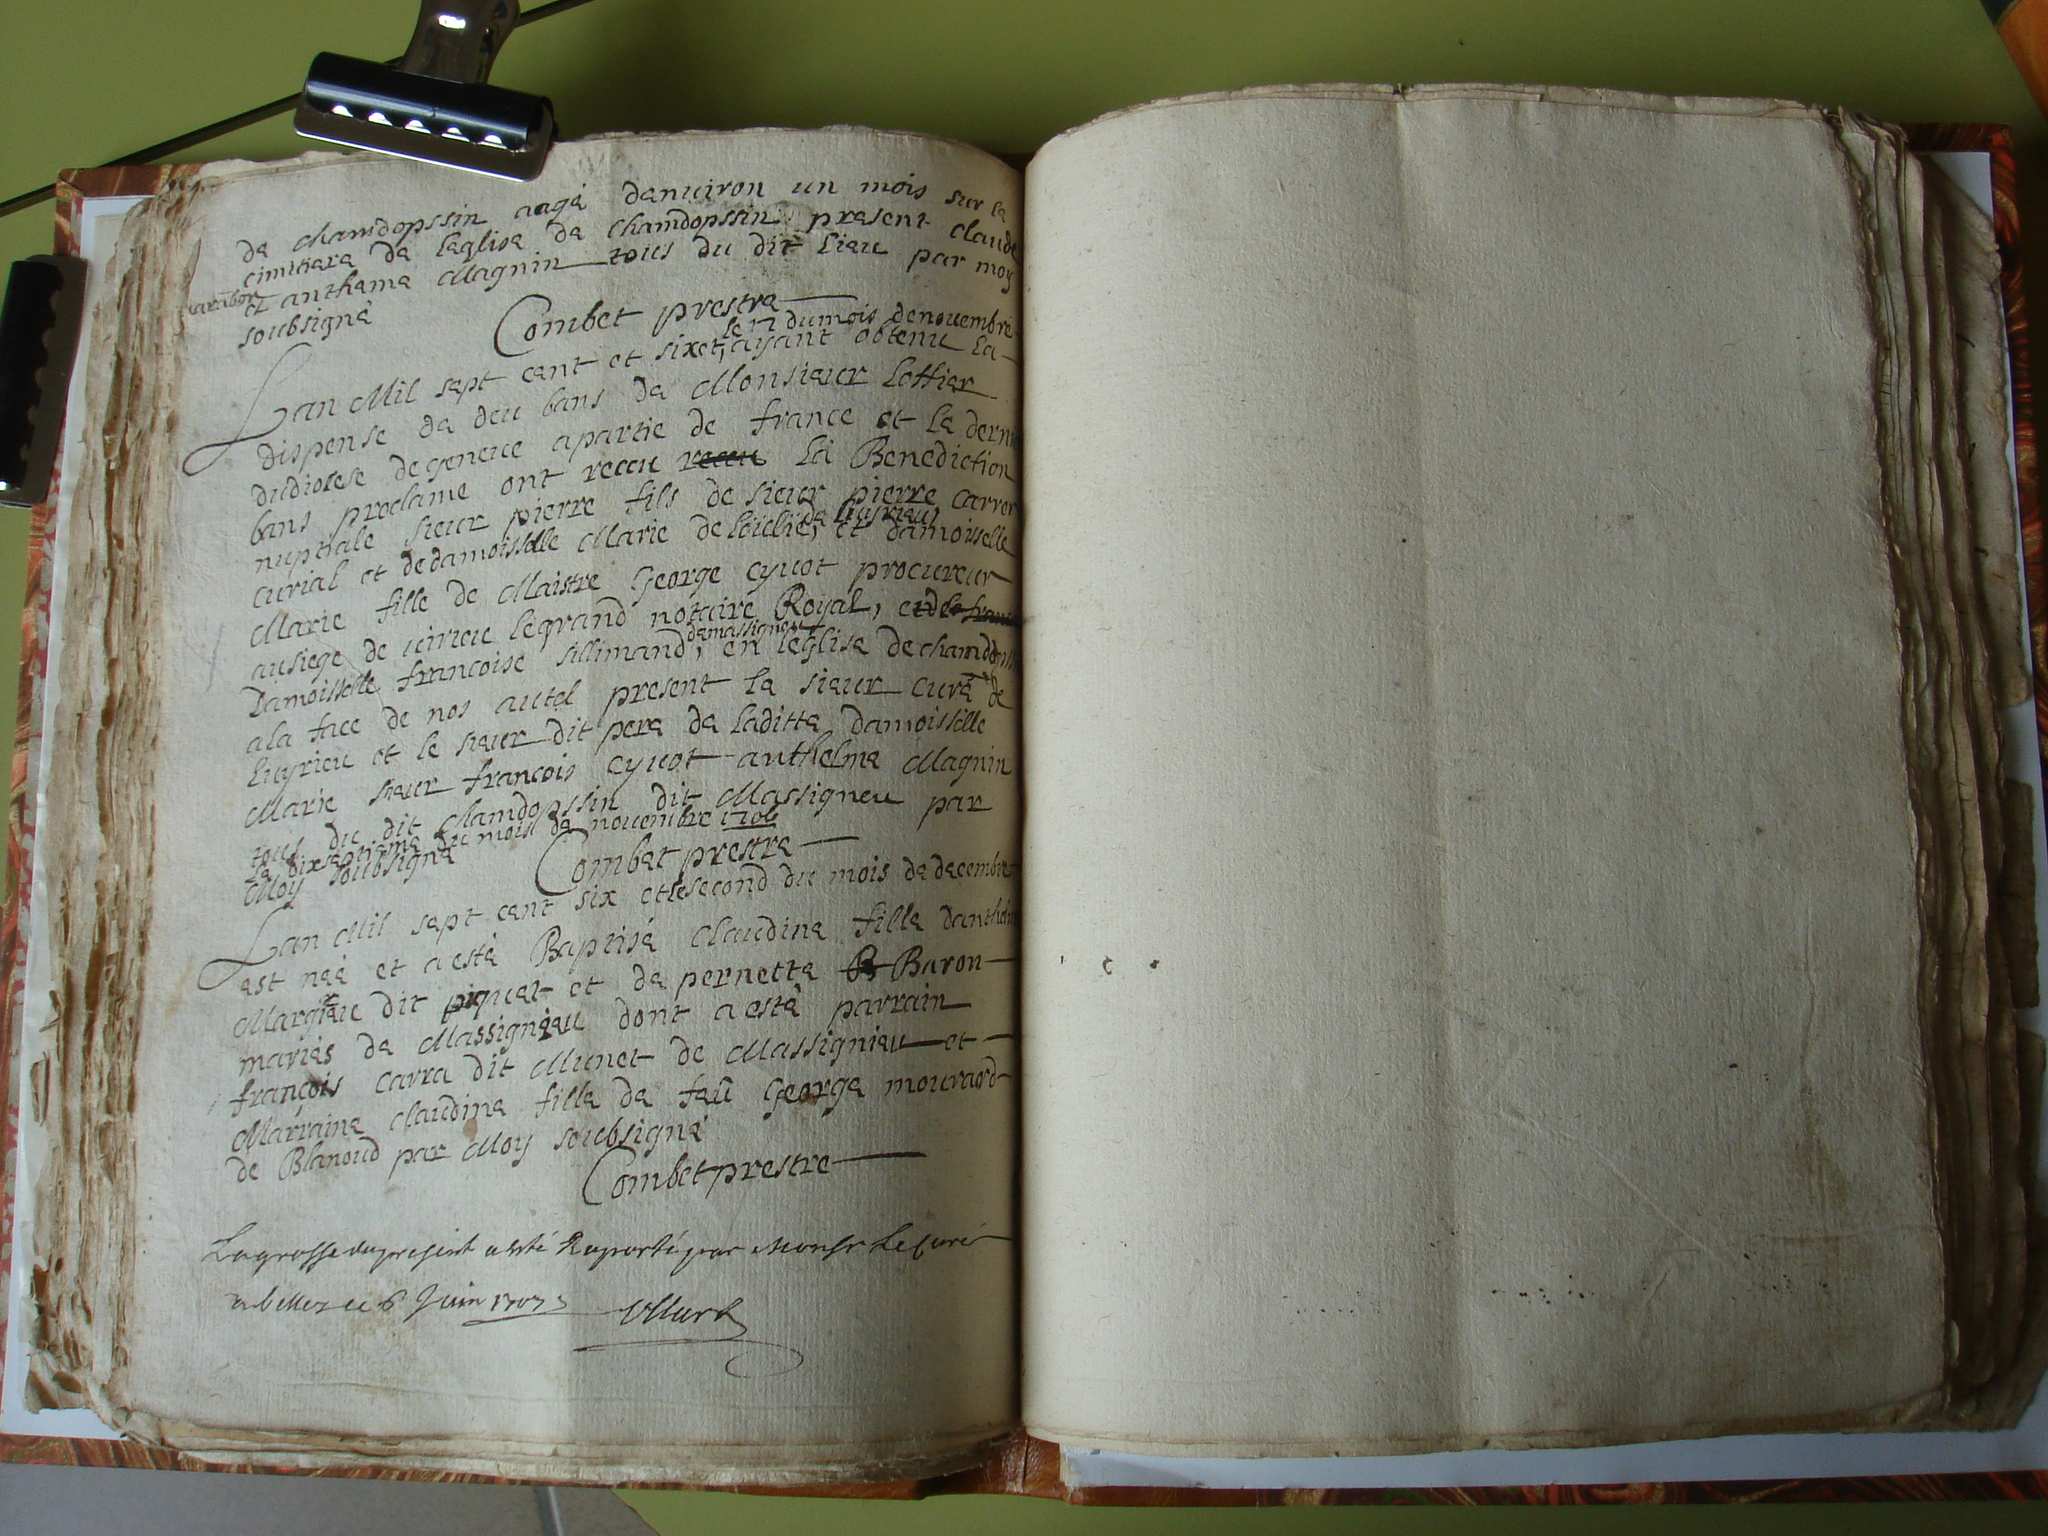 de chamdossin aagé denuiron un mois sur la
cimitiere de leglise de chamdossin present claude
et antheme Magnin tous du dit lieu par moy
soubsigné
Combet prestre
le 17 dumois denouembre
Lan Mil sept cent et six et, ayant obtenu la
dispense de deu bans de Monsieur
dudiocese degeneue apartie de france et la
bans proclame ont receu receu la Benediction
nuptiale sieur pierre fils de sieur pierre carrer
de luyrieu
curial et dedamoisselle Marie et damoisselle
Marie fille de Maistre George cyuot procureur
ausiege de uirieu legrand notaire Royal,
demassigneu
Damoisselle francoise sillimand, en leglise de
ala face de nos autel present le sieur curé de
Luyrieu et le sieur dit pere de laditte damoisselle
Marie sieur francois cyuot anthelme Magnin
tous du dit chamdossin dit Massigneu par
le dixseptieme du mois de nouembre 1706
Moy soubsigné
Combet prestre
Lan Mil sept cent six et le second du mois de decembre
est neé et a esté Baptisé claudine fille
Margieu dit piquet et de pernette B Baron
mariés de Massignieu dont a esté parrain
françois carra dit Munet de Massignieu et
Marraine claudine fille de feü George mourard
de Blanoud par Moy soubsigné
Combet prestre
La grosse du present a esté Raporté par Monsr Le Curé
a belley ce 6 Juin 1707